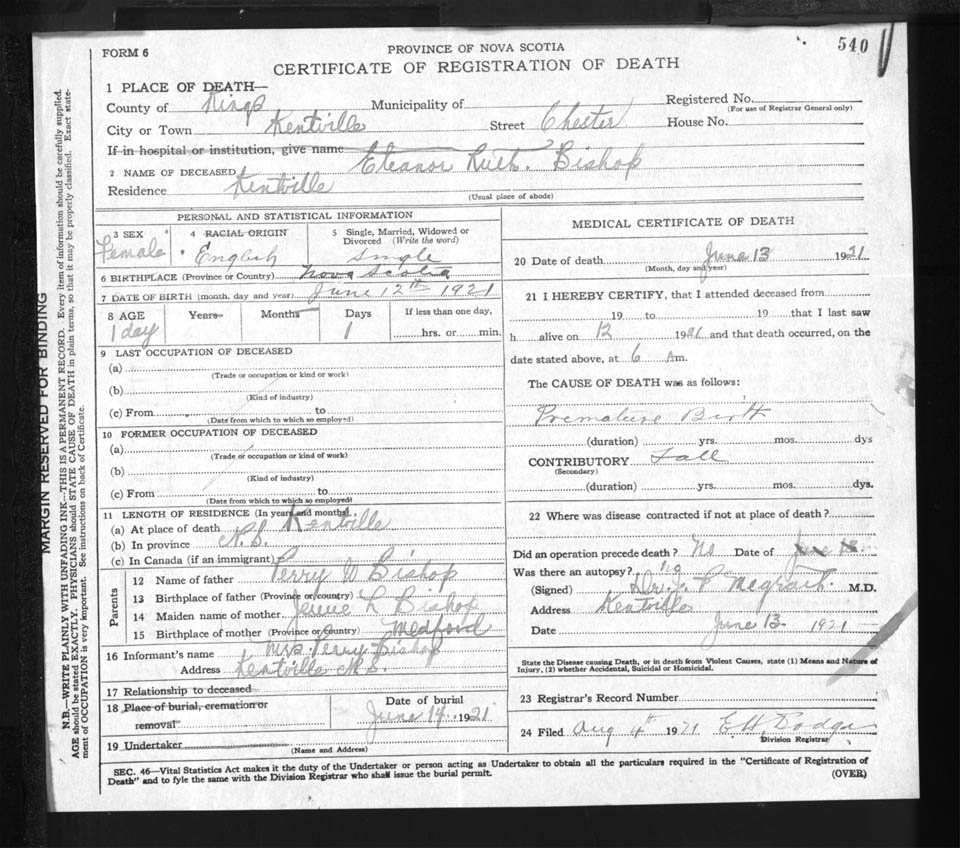 FORM 6
PROVINCE OF NOVA SCOTIA
540
CERTIFICATE OF REGISTRATION OF DEATH
1 PLACE OF DEATH—
County of Kings Municipality of Registered No.
(For use of Registrar General only)
City or Town Kentville Street Chester House No.
If in hospital or institution, give name
2 NAME OF DECEASED Eleanor Ruth. Bishop
Residence Kentville
(Usual place of abode)
PERSONAL AND STATISTICAL INFORMATION
3 SEX 4 RACIAL ORIGIN 5 Single, Married, Widowed or
Divorced (Write the word)
Female English Single
6 BIRTHPLACE (Province or Country) Nova Scotia
7 DATE OF BIRTH (month, day and year) June 12th 1921
8 AGE Years Months Days If less than one day,
1 day 1 hrs. or min.
9 LAST OCCUPATION OF DECEASED
(a)
(Trade or occupation or kind or work)
(b)
(Kind of industry)
(c) From to
(Date from which to which so employed)
10 FORMER OCCUPATION OF DECEASED
(a)
(Trade or occupation or kind of work)
(b)
(Kind of industry)
(c) From to
(Date from which to which so employed)
11 LENGTH OF RESIDENCE (In years and months).
(a) At place of death Kentville
(b) In province N.S.
(c) In Canada (if an immigrant)
Parents
12 Name of father Perry W Bishop
13 Birthplace of father (Province or country)
14 Maiden name of mother Jennie L Bishop
15 Birthplace of mother (Province or country) Medford
16 Informant's name Mrs. Perry Bishop
Address Kentville N.S.
17 Relationship to deceased
18 Place of burial, cremation or
removal
Date of burial
June 14, 1921
19 Undertaker
(Name and Address)
MEDICAL CERTIFICATE OF DEATH
20 Date of death June 13 1921
(Month, day and year)
21 I HEREBY CERTIFY, that I attended deceased from
19 to 19 that I last saw
h alive on 12 1921 and that death occurred, on the
date stated above, at 6 A m.
The CAUSE OF DEATH was as follows:
Premature Birth
(duration) yrs. mos. dys
CONTRIBUTORY Fall
(Secondary)
(duration) yrs. mos. dys.
22 Where was disease contracted if not at place of death?
Did an operation precede death? No Date of June 13
Was there an autopsy? no
(Signed) Dr. J. P. McGrath M.D.
Address Kentville
Date June 13. 1921
State the Disease causing Death, or in death from Violent Causes, state (1) Means and Nature of
Injury, (2) whether Accidental, Suicidal or Homicidal.
23 Registrar's Record Number
24 Filed Aug 4th 1921 E. H. Dodge
Division Registrar
SEC. 46—Vital Statistics Act makes it the duty of the Undertaker or person acting as Undertaker to obtain all the particulars required in the "Certificate of Registration of
Death" and to fyle the same with the Division Registrar who shall issue the burial permit.
(OVER)
MARGIN RESERVED FOR BINDING
N.B.—WRITE PLAINLY WITH UNFADING INK—THIS IS A PERMANENT RECORD. Every item of information should be carefully supplied.
AGE should be stated EXACTLY. PHYSICIANS should STATE CAUSE OF DEATH in plain terms, so that it may be properly classified. Exact state-
ment of OCCUPATION is very important. See instructions on back of Certificate.